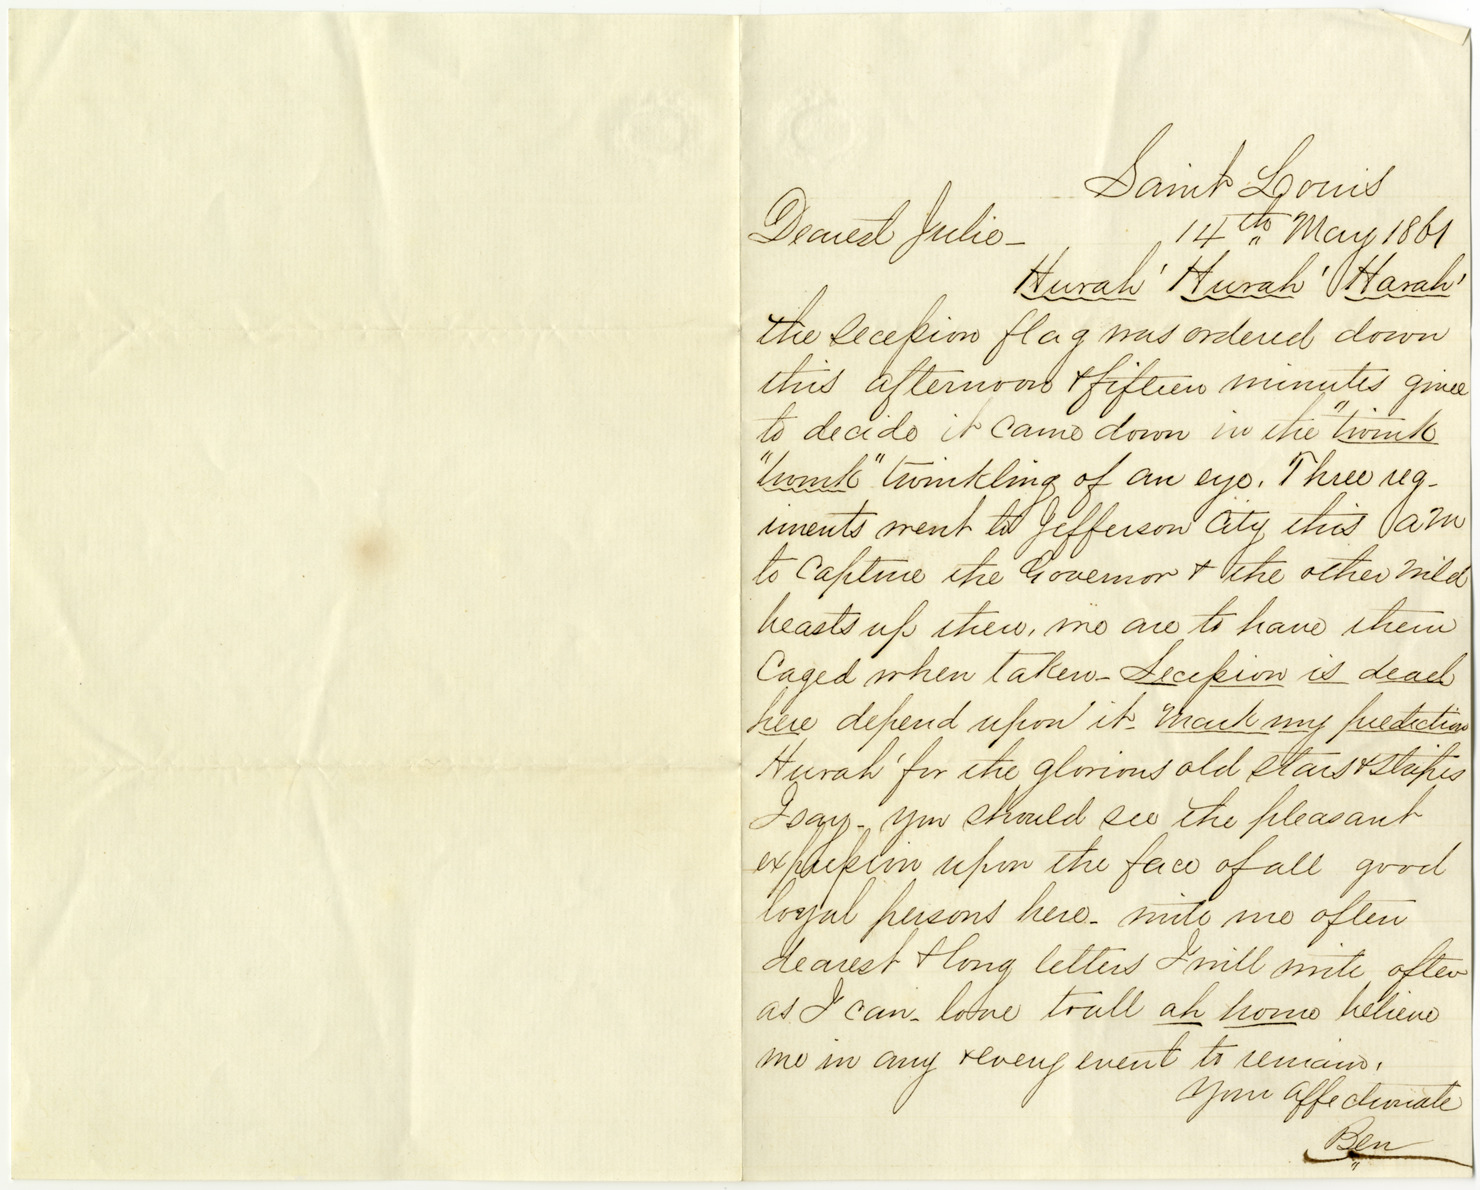 Saint Louis
Dearest Julie - 14th May 1861
Hurah' Hurah' Harah'
the Secession flag was ordered down
this afternoon & fifteen minutes given
to decide it came down in the "twink
"twink" twinkling of an eye. Three reg-
iments went to Jefferson City this AM
to Capture the Governor & the other wild
beasts up there. we are to have them
Caged when taken - Secession is dead
here depend upon it - Mark my prediction
Hurah' for the glorious old Stars & Stripes
I say - you should see the pleasant
expression upon the face of all good
loyal persons here - write me often
dearest & long letters I will write often
as I can - love to all at home believe
me in any & every event to remain.
Your Affectionate
Ben